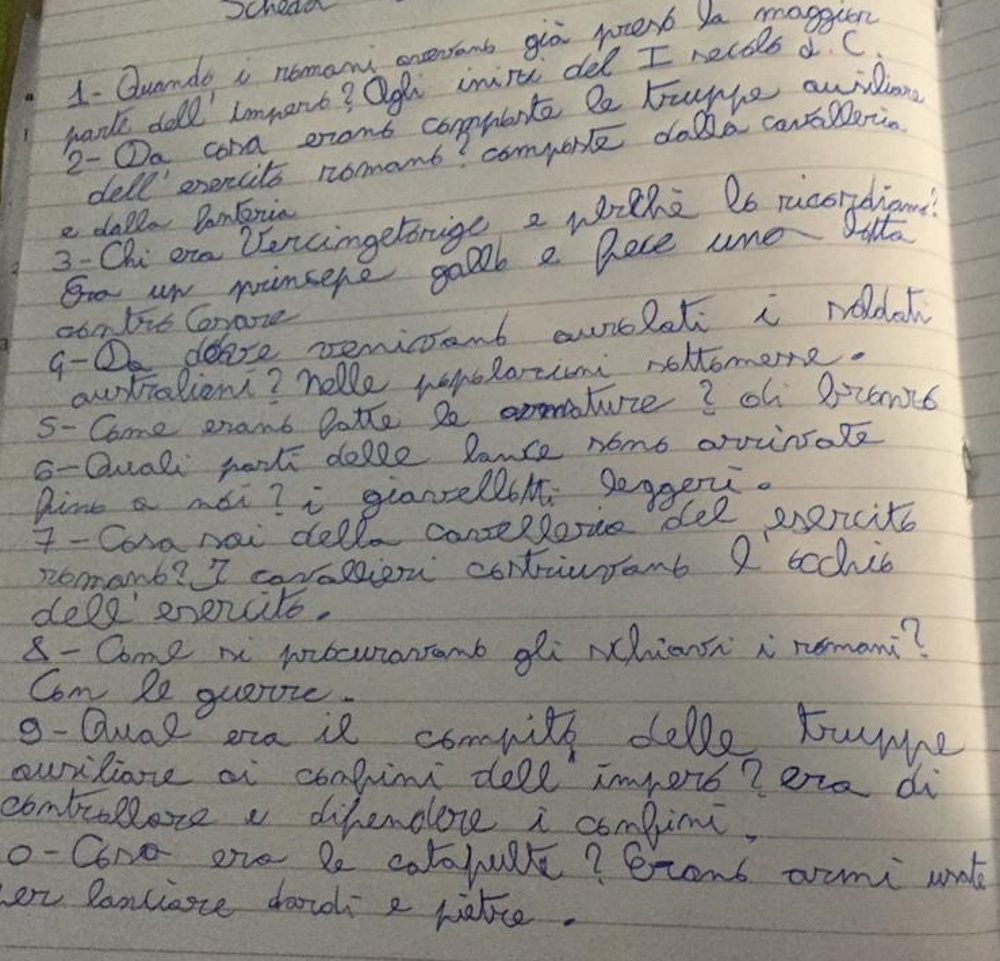 Scheda
1- Quando i romani avevano già preso la maggior
parte dell'impero? Agli inizi del I secolo d.C.
2- Da cosa erano composte le truppe ausiliare
dell'esercito romano? composte dalla cavalleria
e dalla fanteria
3- Chi era Vercingetorige e perchè lo ricordiamo?
Era un prinsepe gallo e fece una lotta
contro Cesare
4- Da dove venivano auro­lati i soldati
australiani? nelle popolazioni sottomesse.
5- Come erano fatte le armature? di bronzo
6- Quali parti delle lance sono arrivate
fino a noi? i giavellotti leggeri.
7- Cosa sai della cavelleria del esercito
romano? I cavallieri costriuvano l'occhio
dell'esercito.
8- Come si procuravano gli schiavi i romani?
Con le guerre.
9- Qual era il compito delle truppe
ausiliare ai confini dell'impero? era di
controllare e difendere i confini.
0- Cosa era le catapulte? Erano armi usate
per lanciare dardi e pietre.